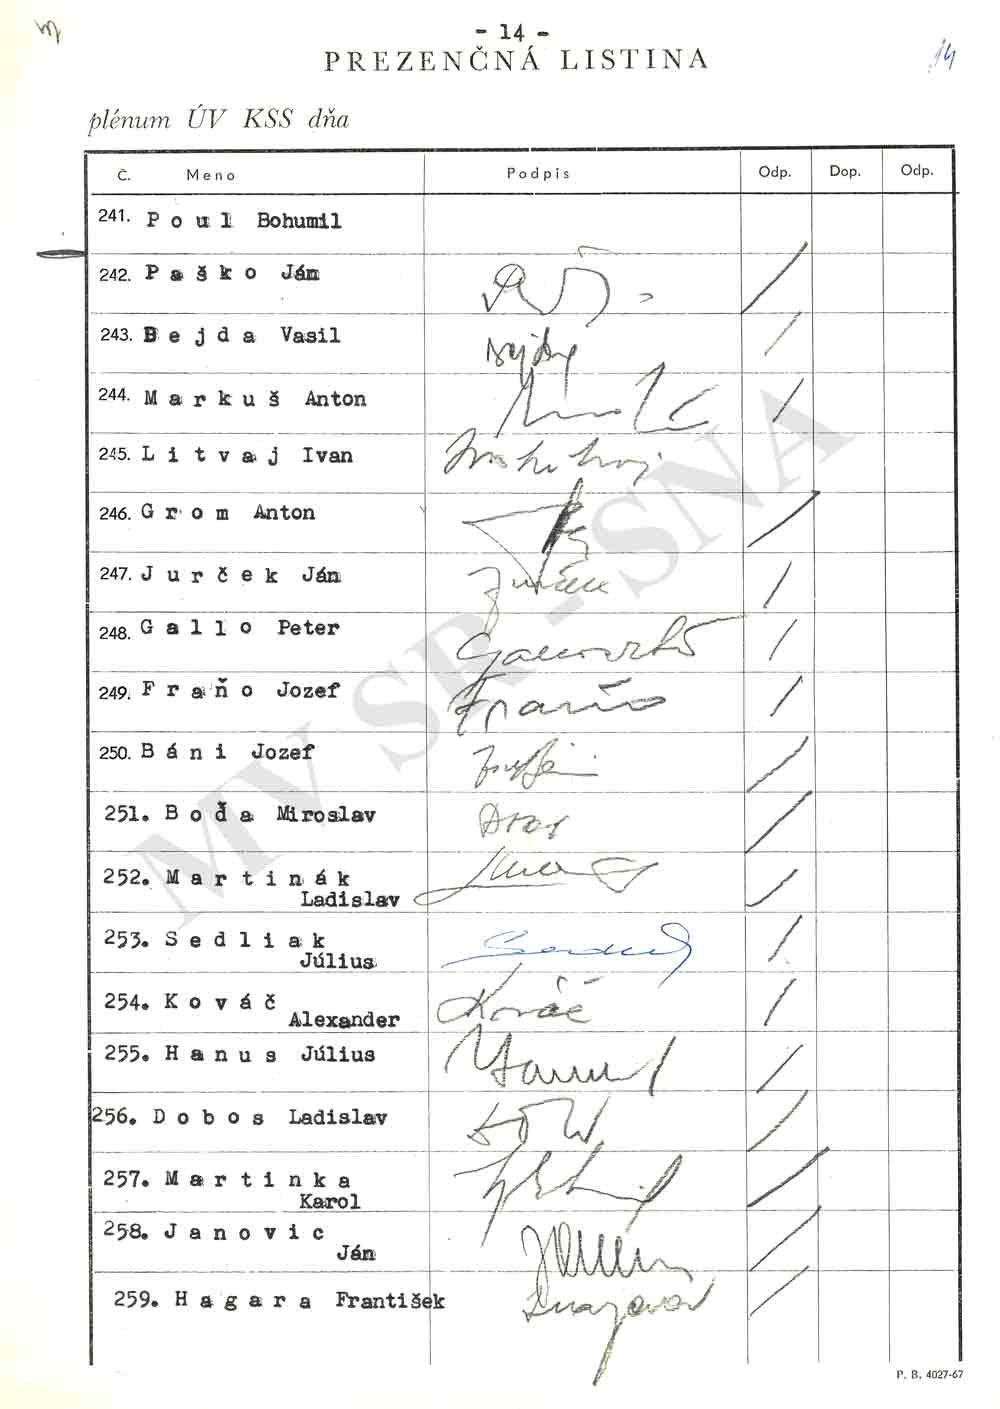 - 14 -
PREZENČNÁ LISTINA
14
plénum ÚV KSS dňa
Č. Meno Podpis Odp. Dop. Odp.
241. Poul Bohumil
242. Paško Ján
243. Bejda Vasil
244. Markuš Anton
245. Litvaj Ivan
246. Grom Anton
247. Jurček Ján
248. Gallo Peter
249. Fraňo Jozef Fraňo
250. Báni Jozef
251. Boďa Miroslav
252. Martinák
Ladislav
253. Sedliak
Július
254. Kováč Kováč
Alexander
255. Hanus Július
256. Dobos Ladislav
257. Martinka
Karol
258. Janovic
Ján
259. Hagara František
P. B. 4027-67
MV SR - SNA